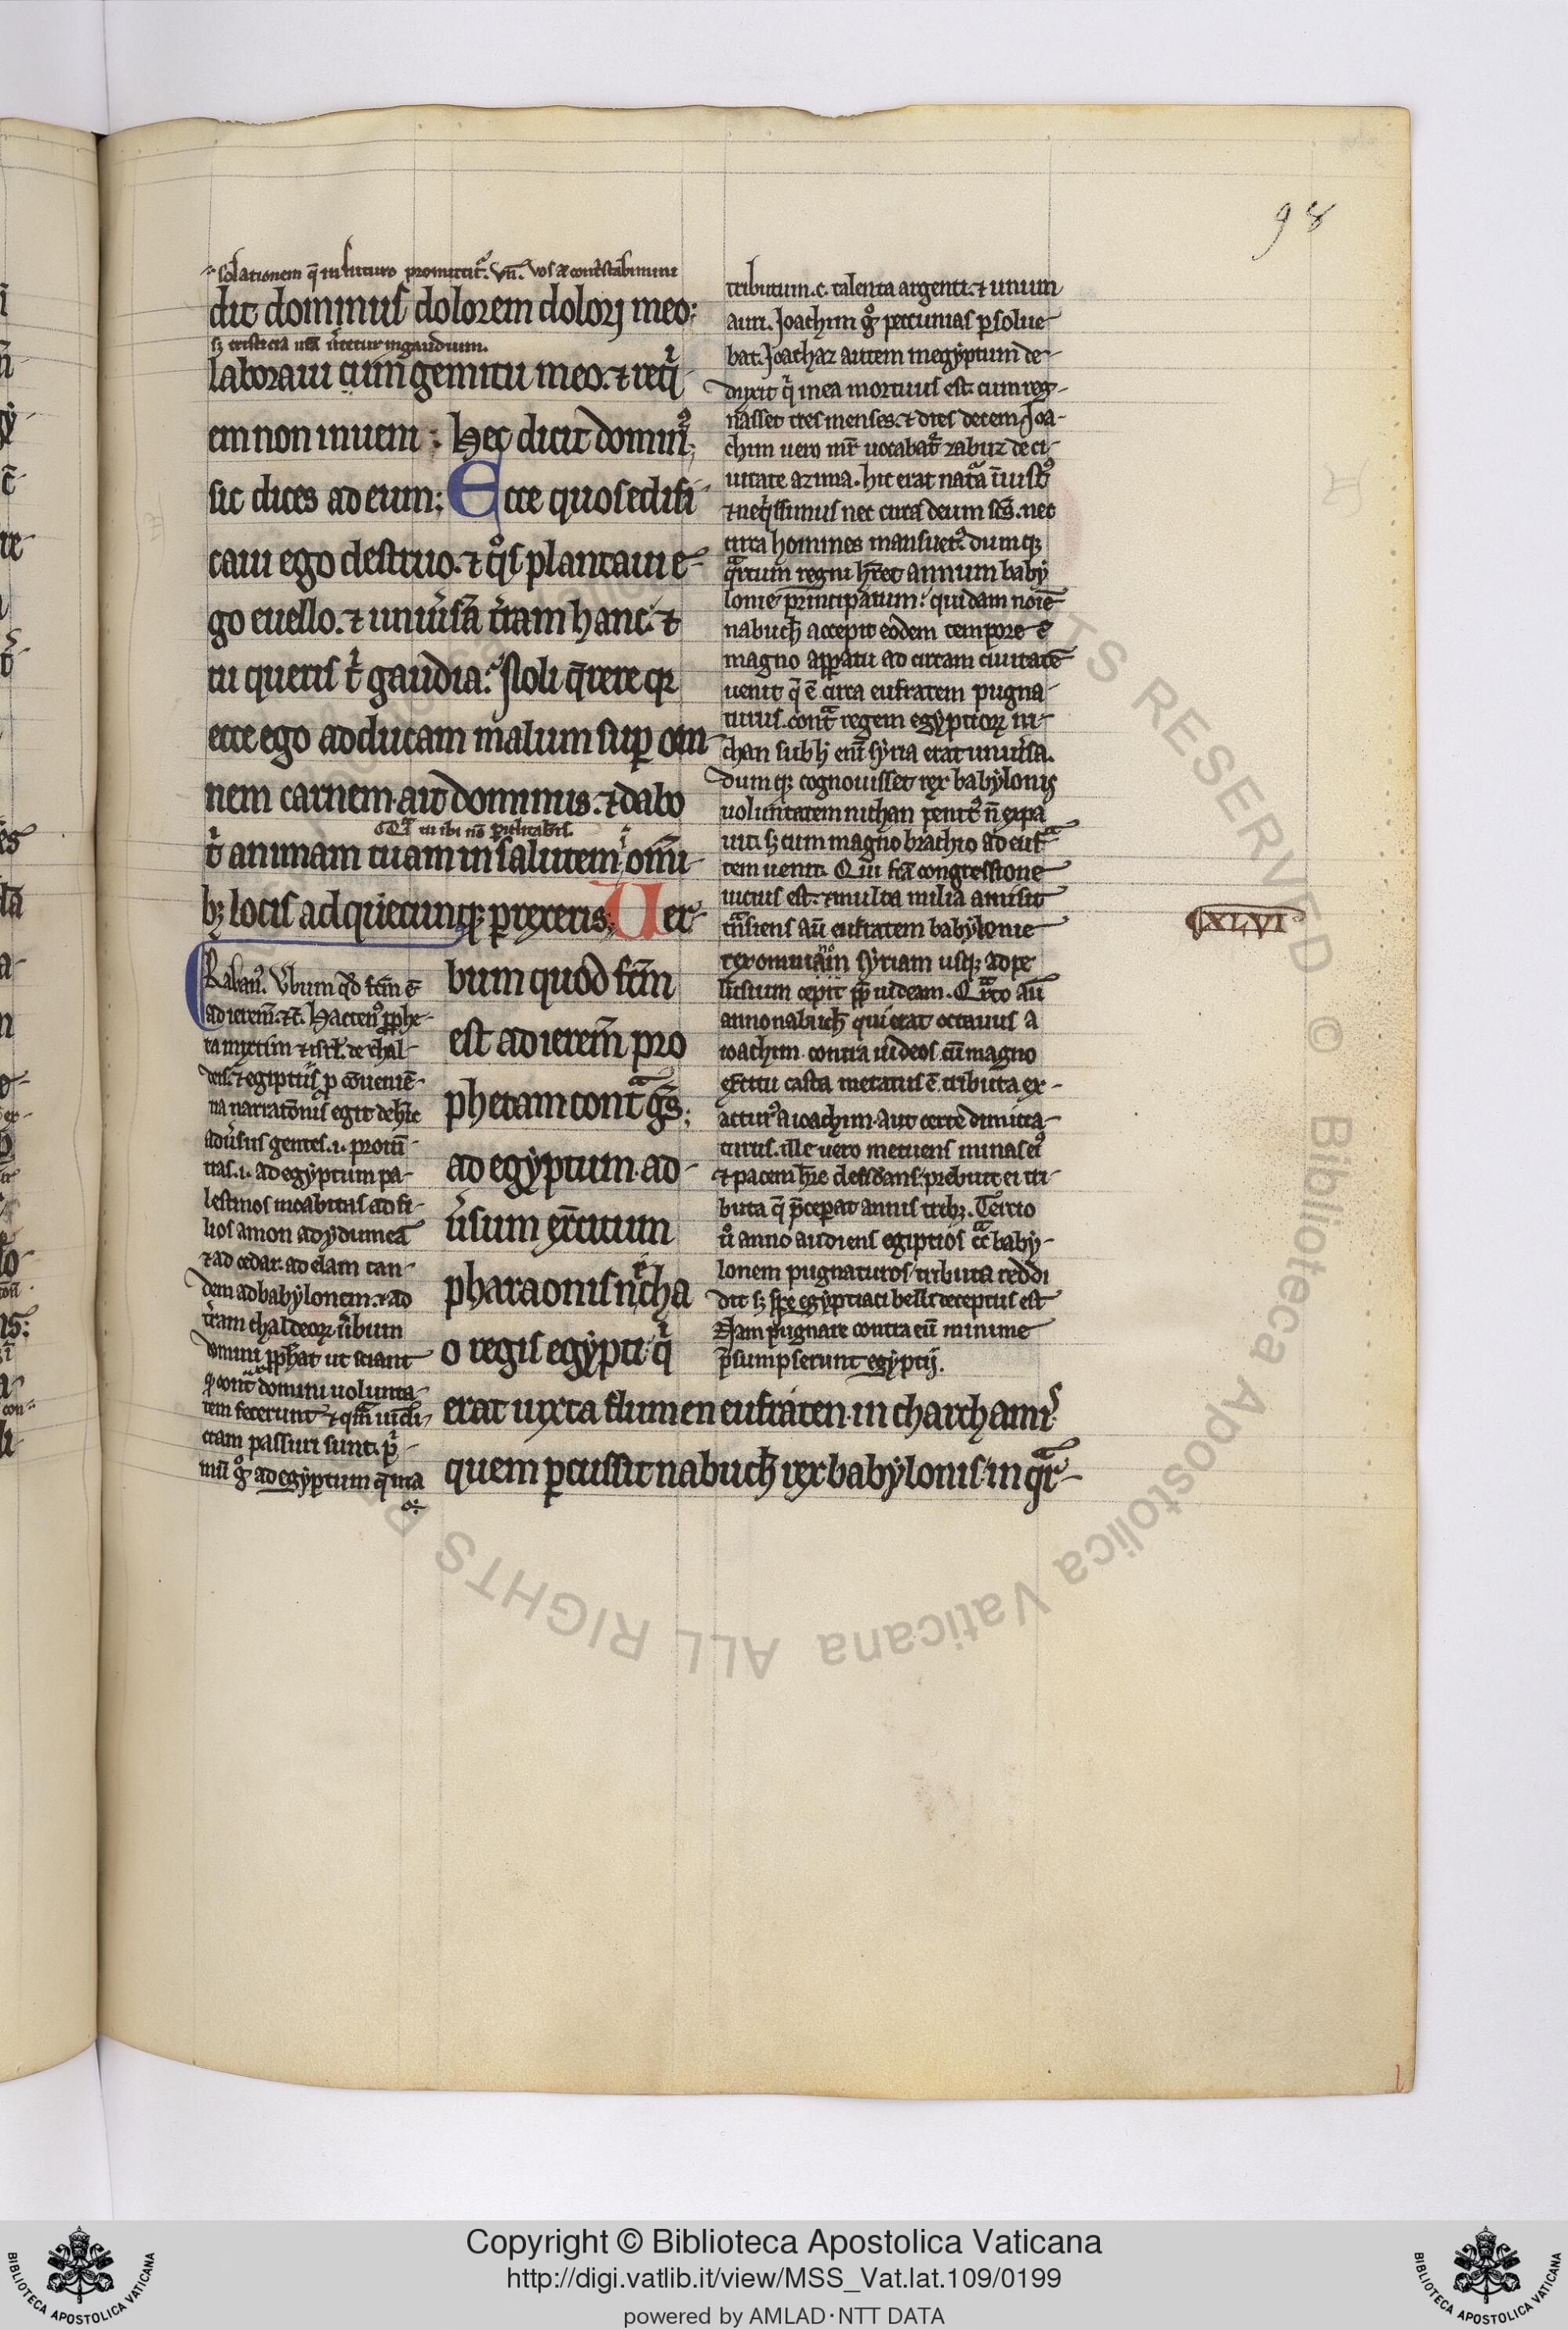 98
solationem q̄ in futuro promittit᷑. Vn̄. vos aut̄ contristabimini
dit dominus dolorem dolori meo:
sꝫ tristicia ur̄a u̾tetur in gaudium.
laboraui cum gemitu meo. ⁊ reqͥ-
em non inueni: Hec dicit dominꝰ.
sic dices ad eum: Ecce quos edifi-
caui ego destruo. ⁊ qͦs plantaui e-
go euello. ⁊ uniu̾sā t̾ram hanc. ⁊
tu queris tͥ gaudia. Noli q̄rere qꝛ
ecce ego adducam malum suꝑ om-
nem carnem. ait dominus. ⁊ dabo
tͥ animam tuam in salutem i omni-
bꝫ locis ad quecunqꝫ perrexeris. Uer-
Rabanꝰ. V̾bum qd̄ fc̄m ē
ad ierem̄. ⁊c̄. Hactenꝰ ꝓphe-
ta mixtim ⁊ isrl̄. de chal-
deis. ⁊ egiptiis ꝓ cōuenien-
tia narratōnis egit dehinc
adu̾sus gentes .i. prouin-
tias .i. ad egyptum pa-
lestinos moabitas ad fi-
lios amon ad ydumeā
⁊ ad cedar. ad elam tan-
dem ad babylonem. ⁊ ad
t̾ram chaldeoꝝ u̾bum
domini ꝓphat ut sciant
ꝙ contͣ domini uolunta-
tem fecerunt ⁊ qm̄ uindi-
ctam passuri sunt. pͥ-
mū gͦ ad egyptum q̄ ura
bum quod fc̄m
est ad ierem̄ pro
phetam contͣ gēs.
ad egyptum. ad-
u̾sum exercitum
pharaonis necha
o regis egypti qͥ
erat iuxta flumen eufraten. in charchamis
quem ꝑcussit nabuch̄ rex babylonis in qͣr-
tributum .c. talenta argenti. ⁊ unum
auri. Joachim gͦ peccunias ꝑsolue-
bat. Joachaz autem in egyptum de-
duxit qͥ in ea mortuus est. cum reg-
nasset tres menses. ⁊ dies decem. Joa-
chim uero mr̄ uocabat᷑ zabuz de ci-
uitate azuma. hic erat natͣ iniustꝰ
⁊ neqͥssimus nec circa deum scs̄. nec
circa homines mansuetꝰ. dumqꝫ
qͣrtum regni hr̄et annum baby
lonie principatum. quidam noīe
nabuch̄ accepit eodem tempore ē
magno apparatu ad circam ciuitatē
uenit q̄ ē circa eufratem pugna-
turus. contͣ regem egyptioꝝ ni-
chan sub hͦ enī syria erat uniu̾sa.
dumqꝫ cognouisset rex babylonis
uoluntatem nichan penitꝰ n̄ expa
uit. sꝫ cum magno brachio ad eufͣ-
tem uenit. Qui fc̄a congressione
uictus est. ⁊ multa milia amisit
tͣnsiens aū eufratem babylonie
rex omnia in syriam usqꝫ ad pe
lusium cepit ꝓp̄ iudeam. Qͣrto aū
anno nabuch̄ qui erat octauus a
ioachim. contra iudeos cū magno
exercitu castra metatus ē tributa ex-
acturꝰ a ioachim. aut certe dimica-
turus. ille uero metuens minas eiꝰ
⁊ pacem hr̄e desiderans. prebuit ei tri-
buta q̄ p̄ceperat annis tribꝫ. Tercio
u̾o anno audiens egiptios cͣ baby-
lonem pugnaturos. tributa reddi
dit sꝫ spe egyptiaci belli deceptus est
Nam pugnare contra eū minime
p̄sumpserunt egyptij.
XLVI
Copyright © Biblioteca Apostolica Vaticana
http://digi.vatlib.it/view/MSS_Vat.lat.109/0199
powered by AMLAD·NTT DATA